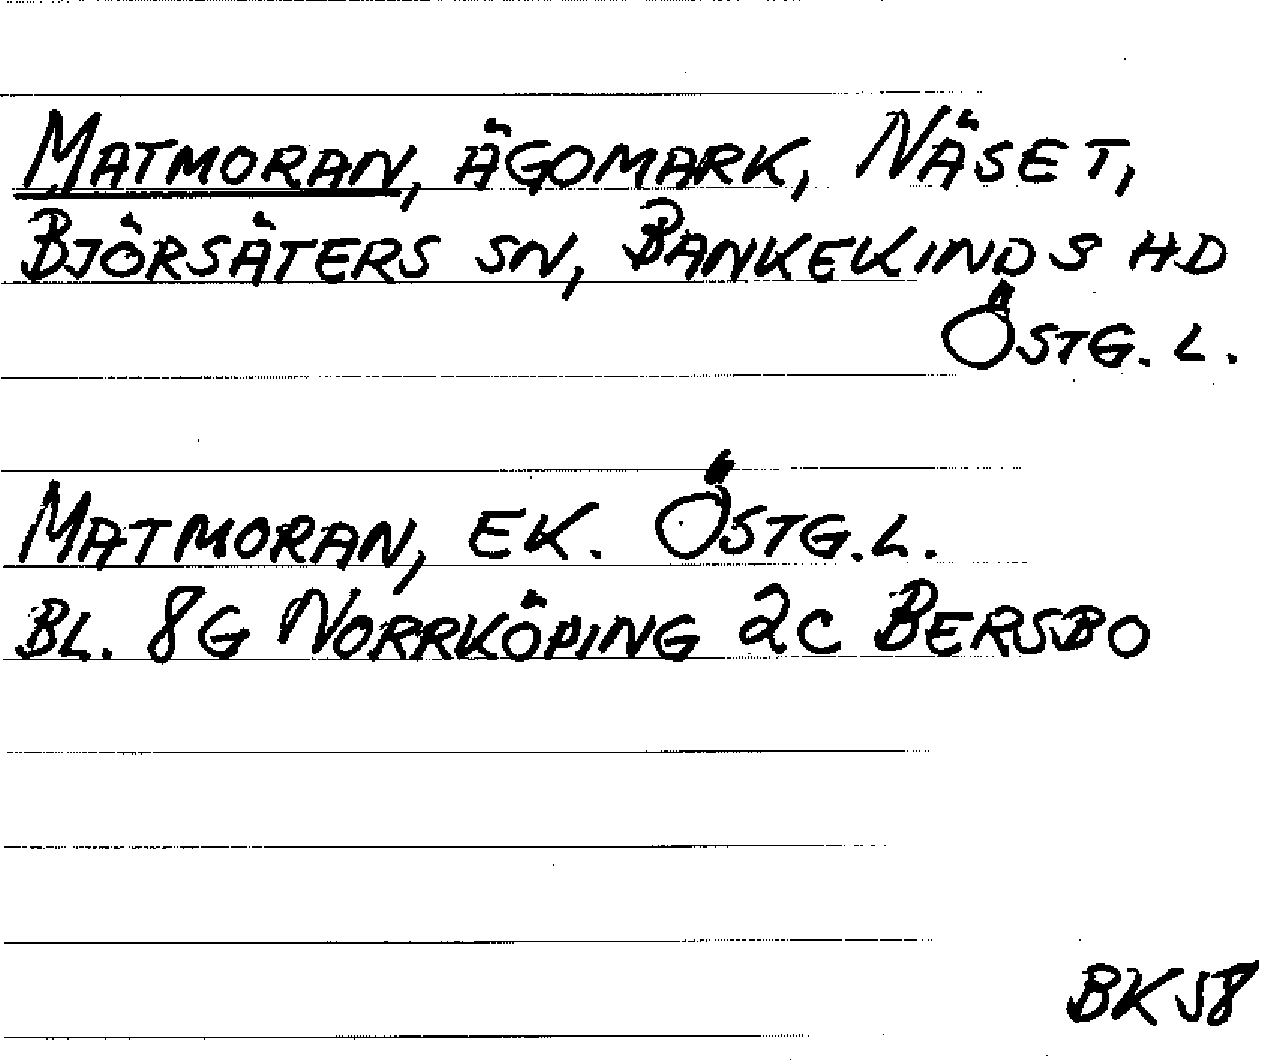 MATMORAN, ÄGOMARK, NÄSET,
BJÖRSÄTERS SN, BANKEKINDS HD
ÖSTG. L.
MATMORAN, EK. ÖSTG.L.
BL. 8G NORRKÖPING 2C BERSBO
BK58